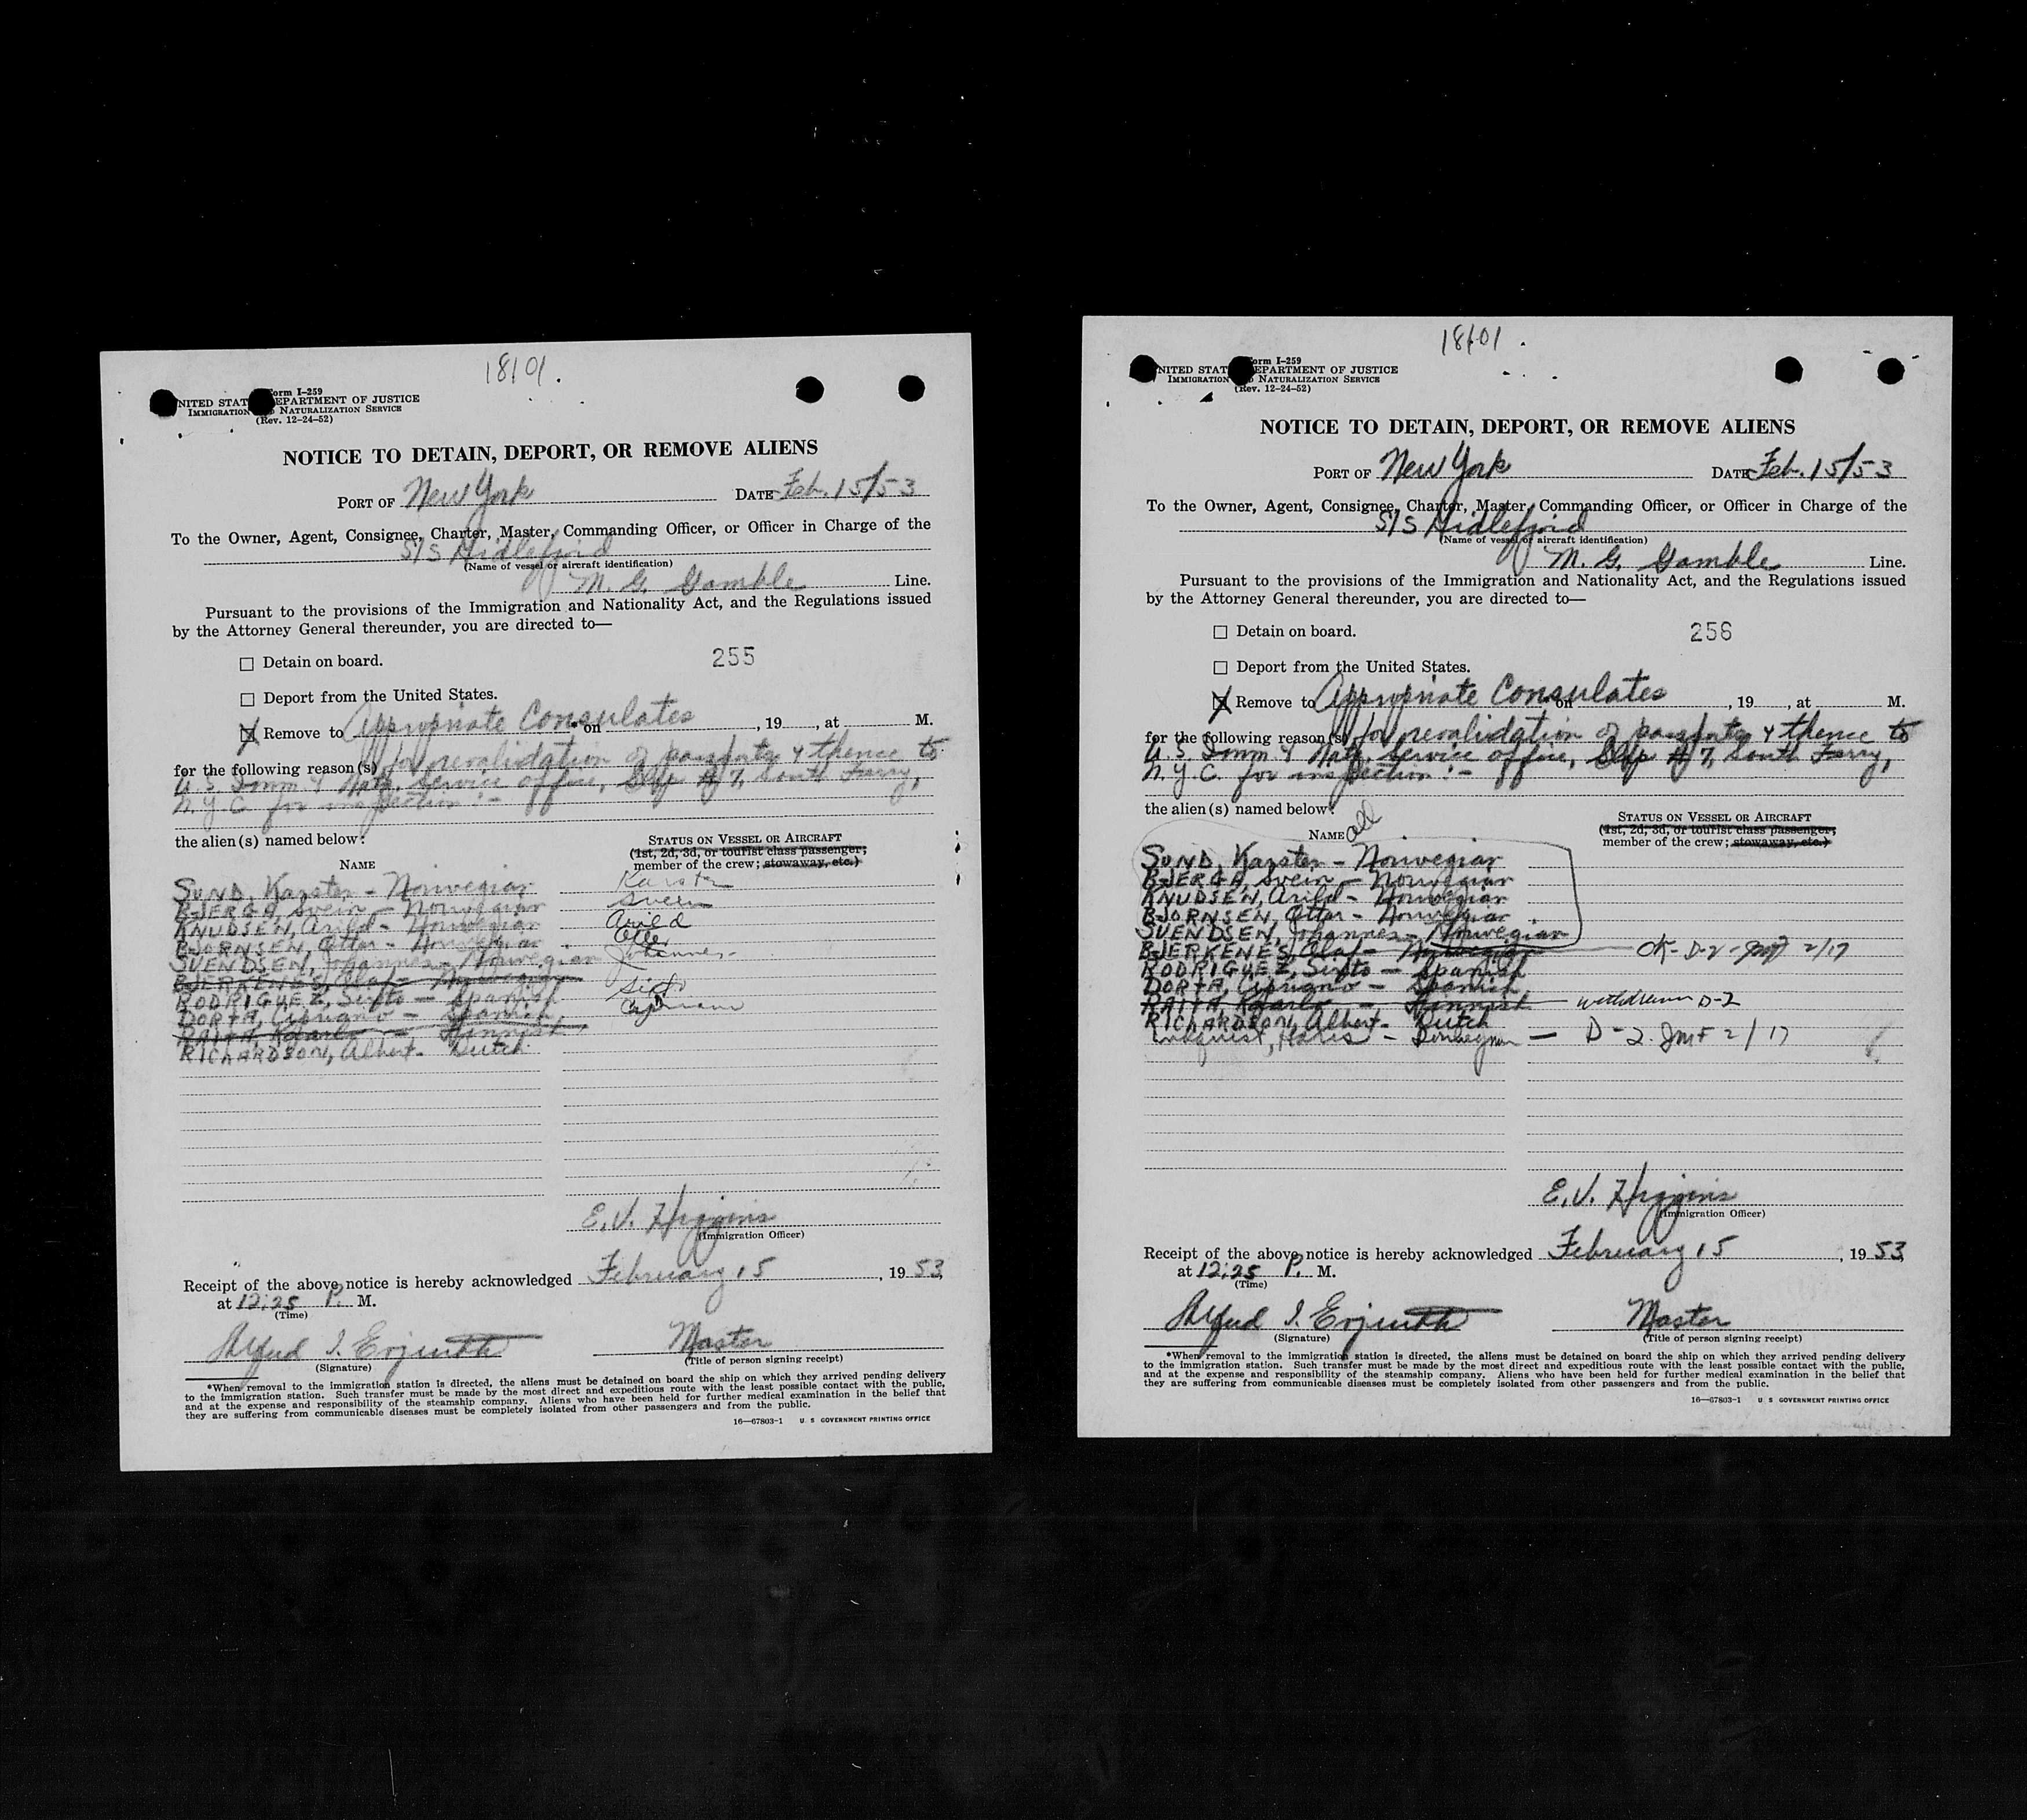 18101.
Form I-259
UNITED STATES DEPARTMENT OF JUSTICE
IMMIGRATION AND NATURALIZATION SERVICE
(Rev. 12-24-52)
NOTICE TO DETAIN, DEPORT, OR REMOVE ALIENS
PORT OF New York DATE Feb. 15/53
To the Owner, Agent, Consignee, Charter, Master, Commanding Officer, or Officer in Charge of the
S/S Hidlefjord
(Name of vessel or aircraft identification)
M. G. Gamble Line.
Pursuant to the provisions of the Immigration and Nationality Act, and the Regulations issued
by the Attorney General thereunder, you are directed to—
☐ Detain on board.
255
☐ Deport from the United States.
☒ Remove to Appropriate Consulates *on , 19 , at M.
for the following reason(s) for revalidation of passports & thence to
U.S. Imm. & Natz. Service office, Slip # 7, South Ferry,
N.Y.C. for inspection:-
the alien(s) named below:
NAME
STATUS ON VESSEL OR AIRCRAFT
(1st, 2d, 3d, or tourist class passenger;
member of the crew; stowaway, etc.)
SUND, Karsten - Norwegian Karsten
BJERGA, Svein - Norwegian Svein
KNUDSEN, Arild - Norwegian Arild
BJORNSEN, Otter - Norwegian Otter
SVENDSEN, Johannes - Norwegian Johannes
BJERKENES, Olaf - Norwegian
RODRIGUEZ, Sixto - Spanish Sixto
DORTA, Cipriano - Spanish Cipriano
RAITA, Kaarlo - Finnish
RICHARDSON, Albert - Dutch
E. V. Higgins
(Immigration Officer)
Receipt of the above notice is hereby acknowledged February 15, 1953,
at 12:25 P. M.
(Time)
Alfred I.
Master
(Signature)
(Title of person signing receipt)
*When removal to the immigration station is directed, the aliens must be detained on board the ship on which they arrived pending delivery
to the immigration station. Such transfer must be made by the most direct and expeditious route with the least possible contact with the public,
and at the expense and responsibility of the steamship company. Aliens who have been held for further medical examination in the belief that
they are suffering from communicable diseases must be completely isolated from other passengers and from the public.
16—67803-1 U. S. GOVERNMENT PRINTING OFFICE
18101.
Form I-259
UNITED STATES DEPARTMENT OF JUSTICE
IMMIGRATION AND NATURALIZATION SERVICE
(Rev. 12-24-52)
NOTICE TO DETAIN, DEPORT, OR REMOVE ALIENS
PORT OF New York DATE Feb. 15/53
To the Owner, Agent, Consignee, Charter, Master, Commanding Officer, or Officer in Charge of the
S/S Hidlefjord
(Name of vessel or aircraft identification)
M. G. Gamble Line.
Pursuant to the provisions of the Immigration and Nationality Act, and the Regulations issued
by the Attorney General thereunder, you are directed to—
☐ Detain on board.
256
☐ Deport from the United States.
☒ Remove to Appropriate Consulates *on , 19 , at M.
for the following reason(s) for revalidation of passports & thence to
U.S. Imm. & Natz. Service office, Slip # 7, South Ferry,
N.Y.C. for inspection:-
the alien(s) named below:
NAME all
STATUS ON VESSEL OR AIRCRAFT
(1st, 2d, 3d, or tourist class passenger;
member of the crew; stowaway, etc.)
SUND, Karsten - Norwegian
BJERGA, Svein - Norwegian
KNUDSEN, Arild - Norwegian
BJORNSEN, Otter - Norwegian
SVENDSEN, Johannes - Norwegian
BJERKENES, Olaf - Norwegian OK - D-2 - 2/17
RODRIGUEZ, Sixto - Spanish
DORTA, Cipriano - Spanish
RAITA, Kaarlo - Finnish withdrawn D-2
RICHARDSON, Albert - Dutch
Lindquist, Hans - Norwegian - D-2. JMF 2/17
E. V. Higgins
(Immigration Officer)
Receipt of the above notice is hereby acknowledged February 15, 1953,
at 12:25 P. M.
(Time)
Alfred I.
Master
(Signature)
(Title of person signing receipt)
*When removal to the immigration station is directed, the aliens must be detained on board the ship on which they arrived pending delivery
to the immigration station. Such transfer must be made by the most direct and expeditious route with the least possible contact with the public,
and at the expense and responsibility of the steamship company. Aliens who have been held for further medical examination in the belief that
they are suffering from communicable diseases must be completely isolated from other passengers and from the public.
16—67803-1 U. S. GOVERNMENT PRINTING OFFICE